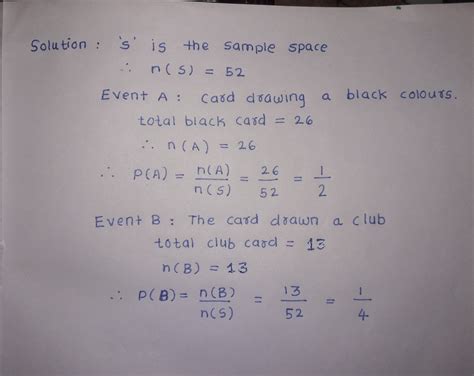 Solution : 's' is the sample space
∴ n(S) = 52
Event A : Card drawing a black colours.
total black card = 26
∴ n(A) = 26
∴ P(A) = n(A)/n(S) = 26/52 = 1/2
Event B : The card drawn a club
total club card = 13
n(B) = 13
∴ P(B) = n(B)/n(S) = 13/52 = 1/4